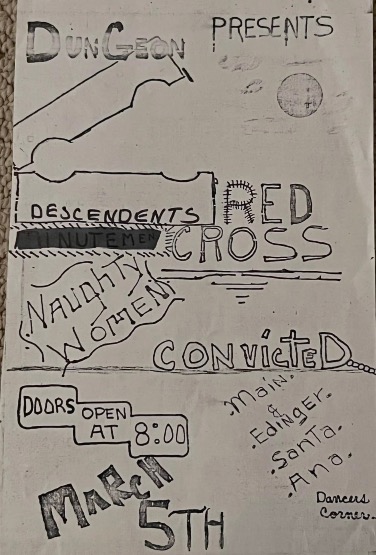 DUNGEON PRESENTS
DESCENDENTS
RED
CROSS
NUTEMEN
NAUGHTY
WOMEN
CONVICTED
DOORS OPEN
AT 8:00
MARCH
5TH
Main.
&
Edinger.
Santa.
Ana.
Dancers
Corner.